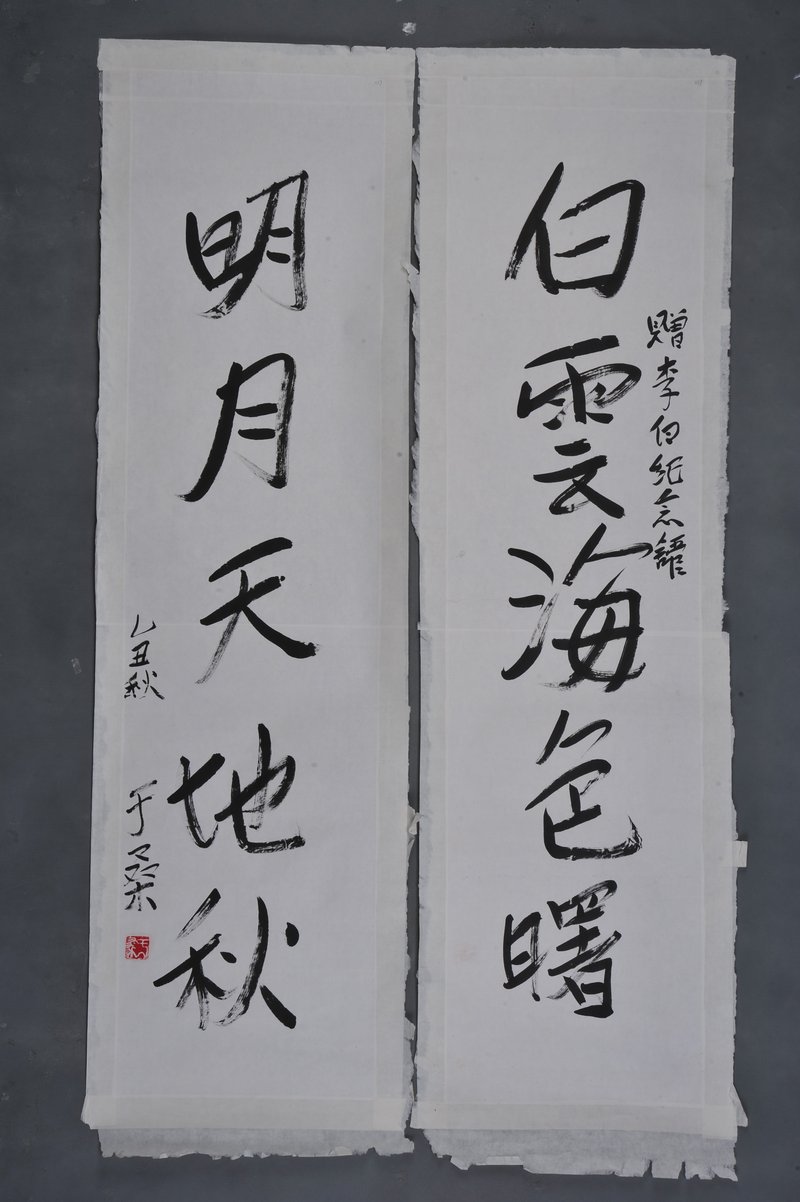 白雲海色曙
贈李白紀念館
明月天地秋
乙丑秋
于桑